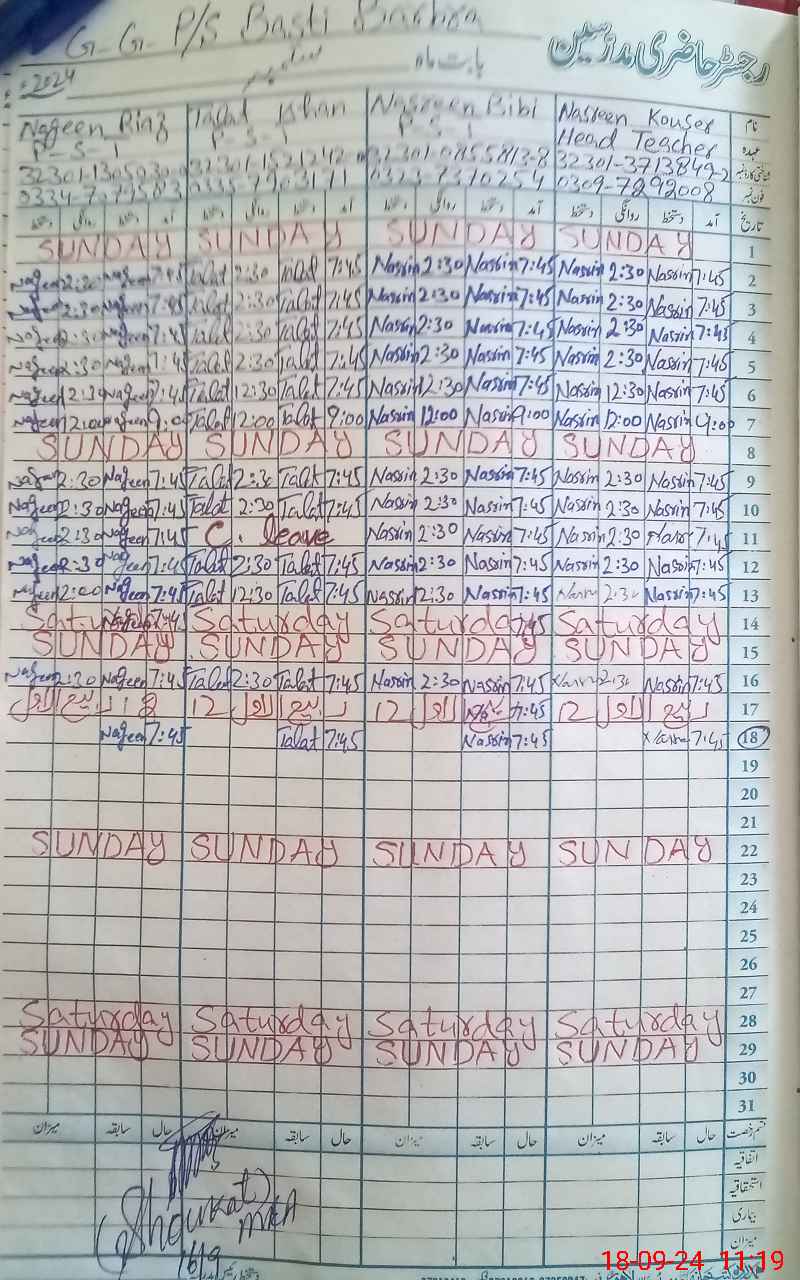 G-G-P/S Basti
رجسٹر حاضری مدرسین
بابت ماہ ستمبر 2024
Nageen Riaz Talat Khan Nasreen Bibi Nasreen Kouser نام
P-S-1 P-S-1 P-S-1 Head Teacher عہدہ
32301-3713849-2
0323-7370254 0309-7292008 فون نمبر
دستخط روانگی دستخط آمد دستخط روانگی دستخط آمد دستخط روانگی دستخط آمد دستخط روانگی دستخط آمد تاریخ
SUNDAY SUNDAY SUNDAY SUNDAY 1
Nageen 2:30 Nageen 7:45 Talat 2:30 Talat 7:45 Nasrin 2:30 Nasrin 7:45 Nasrin 2:30 Nasrin 7:45 2
Nageen 2:30 Nageen 7:45 Talat 2:30 Talat 7:45 Nasrin 2:30 Nasrin 7:45 Nasrin 2:30 Nasrin 7:45 3
Nageen 2:30 Nageen 7:45 Talat 2:30 Talat 7:45 Nasrin 2:30 Nasrin 7:45 Nasrin 2:30 Nasrin 7:45 4
Nageen 2:30 Nageen 7:45 Talat 2:30 Talat 7:45 Nasrin 2:30 Nasrin 7:45 Nasrin 2:30 Nasrin 7:45 5
Nageen 12:30 Nageen 7:45 Talat 12:30 Talat 7:45 Nasrin 12:30 Nasrin 7:45 Nasrin 12:30 Nasrin 7:45 6
Nageen 12:00 Nageen 9:00 Talat 12:00 Talat 9:00 Nasrin 12:00 Nasrin 9:00 Nasrin 12:00 Nasrin 9:00 7
SUNDAY SUNDAY SUNDAY SUNDAY 8
Nageen 2:30 Nageen 7:45 Talat 2:30 Talat 7:45 Nasrin 2:30 Nasrin 7:45 Nasrin 2:30 Nasrin 7:45 9
Nageen 2:30 Nageen 7:45 Talat 2:30 Talat 7:45 Nasrin 2:30 Nasrin 7:45 Nasrin 2:30 Nasrin 7:45 10
Nageen 2:30 Nageen 7:45 C. leave Nasrin 2:30 Nasrin 7:45 Nasrin 2:30 7:45 11
2:30 Nageen 7:45 Talat 2:30 Talat 7:45 Nasrin 2:30 Nasrin 7:45 Nasrin 2:30 Nasrin 7:45 12
Nageen Nageen 7:45 Talat 12:30 Talat 7:45 Nasrin 12:30 Nasrin 7:45 2:30 Nasrin 7:45 13
Saturday 7:45 Saturday Saturday 7:45 Saturday 14
SUNDAY SUNDAY SUNDAY SUNDAY 15
Nageen 2:30 Nageen 7:45 Talat 2:30 Talat 7:45 Nasrin 2:30 Nasrin 7:45 2:30 Nasrin 7:45 16
ربیع الاول 12 ربیع الاول 12 7:45 ربیع الاول 12 17
Nageen 7:45 Talat 7:45 Nasrin 7:45 7:45 18
19
20
21
SUNDAY SUNDAY SUNDAY SUNDAY 22
23
24
25
26
27
Saturday Saturday Saturday Saturday 28
SUNDAY SUNDAY SUNDAY SUNDAY 29
30
31
میزان سابقہ حال میزان سابقہ حال میزان سابقہ حال میزان سابقہ حال قسم رخصت
اتفاقیہ
استحقاقیہ
بیماری
میزان
Shoukat
16/9
18-09-24 11:19